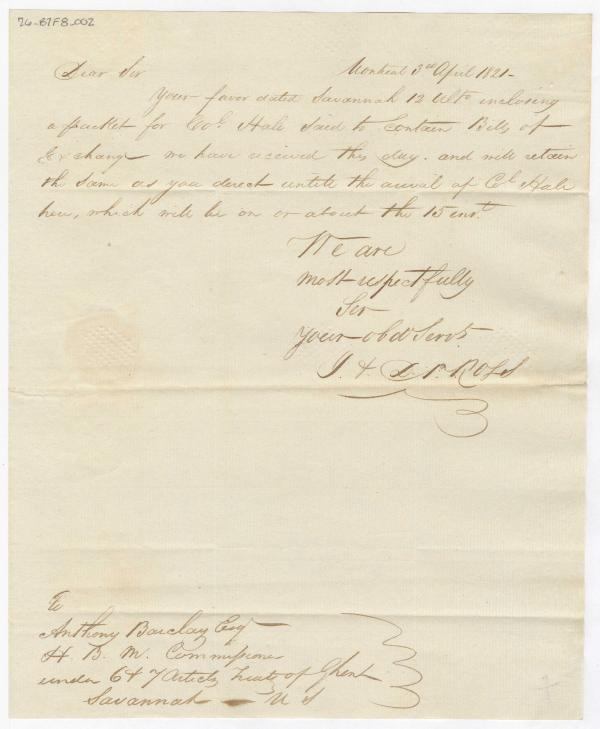 76-B7F8-002
Dear Sir Montreal 3rd April 1821-
Your favor dated Savannah 12 Ulto inclosing
a packet for Col. Hale said to Contain Bills of
Exchange we have received this day. and will retain
the same as you derect untile the arrival of Cl. Hale
here, which will be on or about the 15 inst.
We are
most respectfully
Sir
Your obd Servts.
J. & D. P. ROSS
To
Anthony Barclay Esqr
H. B. M. Commissioner
under 6 & 7 Articles Treate of Ghent
Savannah — U S